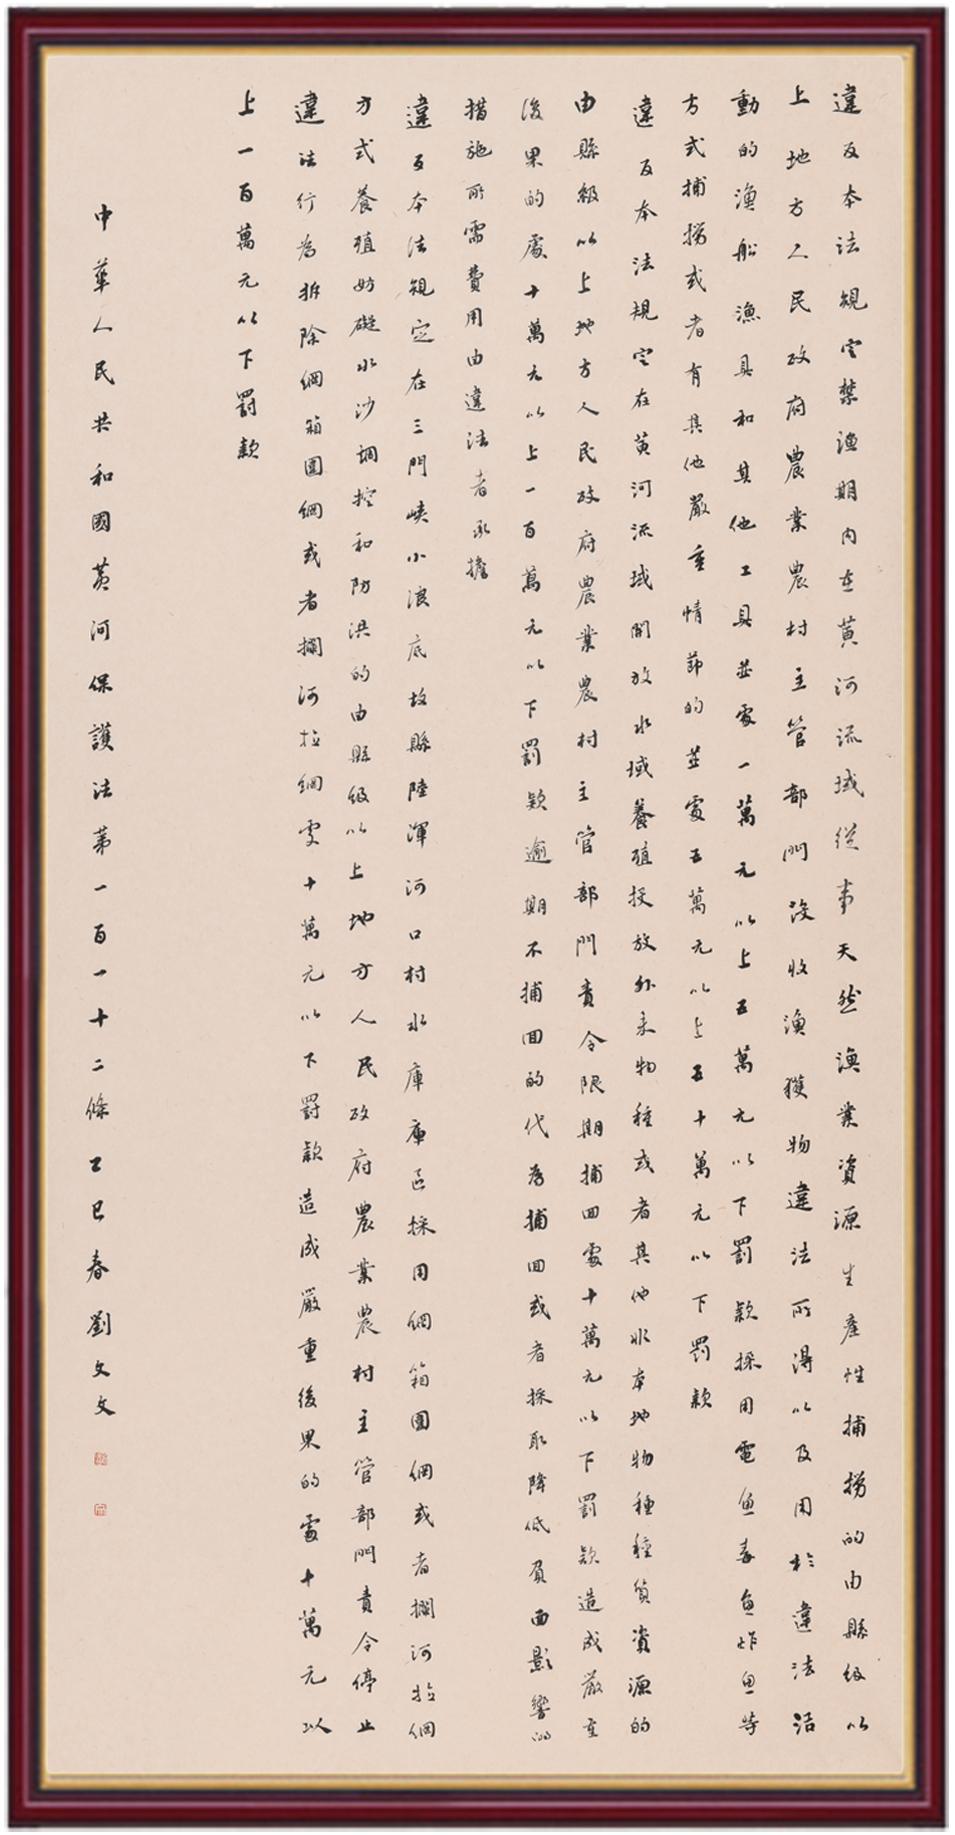 違反本法規定禁漁期內在黃河流域從事天然漁業資源生產性捕撈的由縣級以
上地方人民政府農業農村主管部門沒收漁獲物違法所得以及用於違法活
動的漁船漁具和其他工具並處一萬元以上五萬元以下罰款採用電魚毒魚炸魚等
方式捕撈或者有其他嚴重情節的並處五萬元以上五十萬元以下罰款
違反本法規定在黃河流域開放水域養殖投放外來物種或者其他非本地物種種質資源的
由縣級以上地方人民政府農業農村主管部門責令限期捕回處十萬元以下罰款造成嚴重
後果的處十萬元以上一百萬元以下罰款逾期不捕回的代為捕回或者採取降低負面影響的
措施所需費用由違法者承擔
違反本法規定在三門峽小浪底故縣陸渾河口村水庫庫區採用網箱圍網或者攔河拉網
方式養殖妨礙水沙調控和防洪的由縣級以上地方人民政府農業農村主管部門責令停止
違法行為拆除網箱圍網或者攔河拉網處十萬元以下罰款造成嚴重後果的處十萬元以
上一百萬元以下罰款
中華人民共和國黃河保護法第一百一十二條 乙巳春劉文文